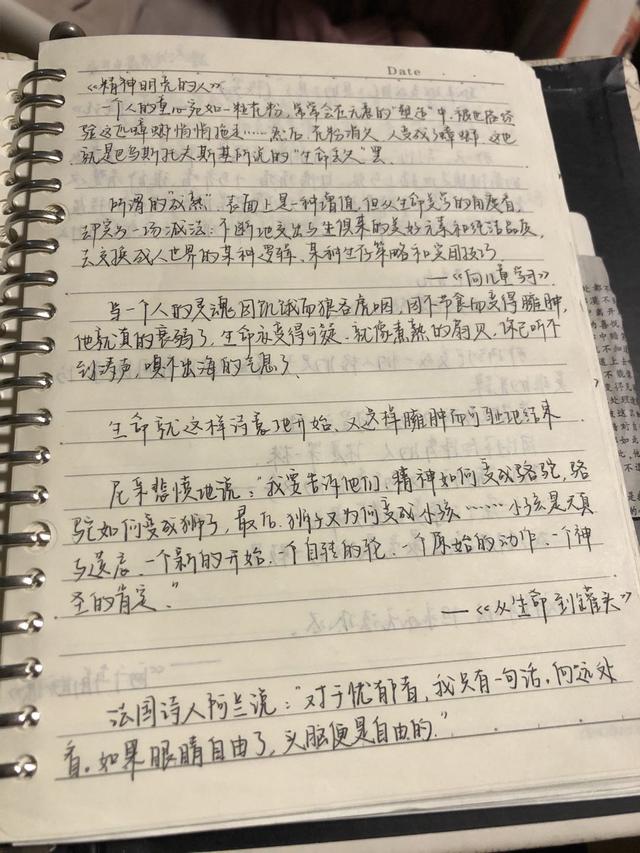 Date
《精神明亮的人》
一个人的童心宛如一粒花粉，常常会在无意的“塑造”中，被世俗经
验这匹蟑螂悄悄拖走……然后，花粉消失，人变成了蟑螂。这也
就是巴乌斯托夫斯基所说的“生命丢失”罢
所谓的“成熟”，表面上是一种增值，但从生命美学的角度看，
却实为一场减法：不断地交出与生俱来的美好元素和纯洁品质，
去交换成人世界的某种逻辑、某种生存策略和实用技巧
——《向儿童学习》
当一个人的灵魂因饥饿而狼吞虎咽，因不节食而变得臃肿，
他就真的衰弱了，生命亦变得可疑，就像煮熟的扇贝，你已听不
到涛声，嗅不出海的气息了
生命就这样诗意地开始，又这样臃肿而可耻地结束
尼采悲愤地说：“我要告诉他们，精神如何变成骆驼，骆
驼如何变成狮子，最后，狮子又为何变成小孩……小孩是天真
与遗忘，一个新的开始、一个自转的轮、一个原始的动作、一个神
圣的肯定。”
——《从生命到罐头》
法国诗人阿兰说：“对于忧郁者，我只有一句话，向远处
看。如果眼睛自由了，头脑便是自由的。”